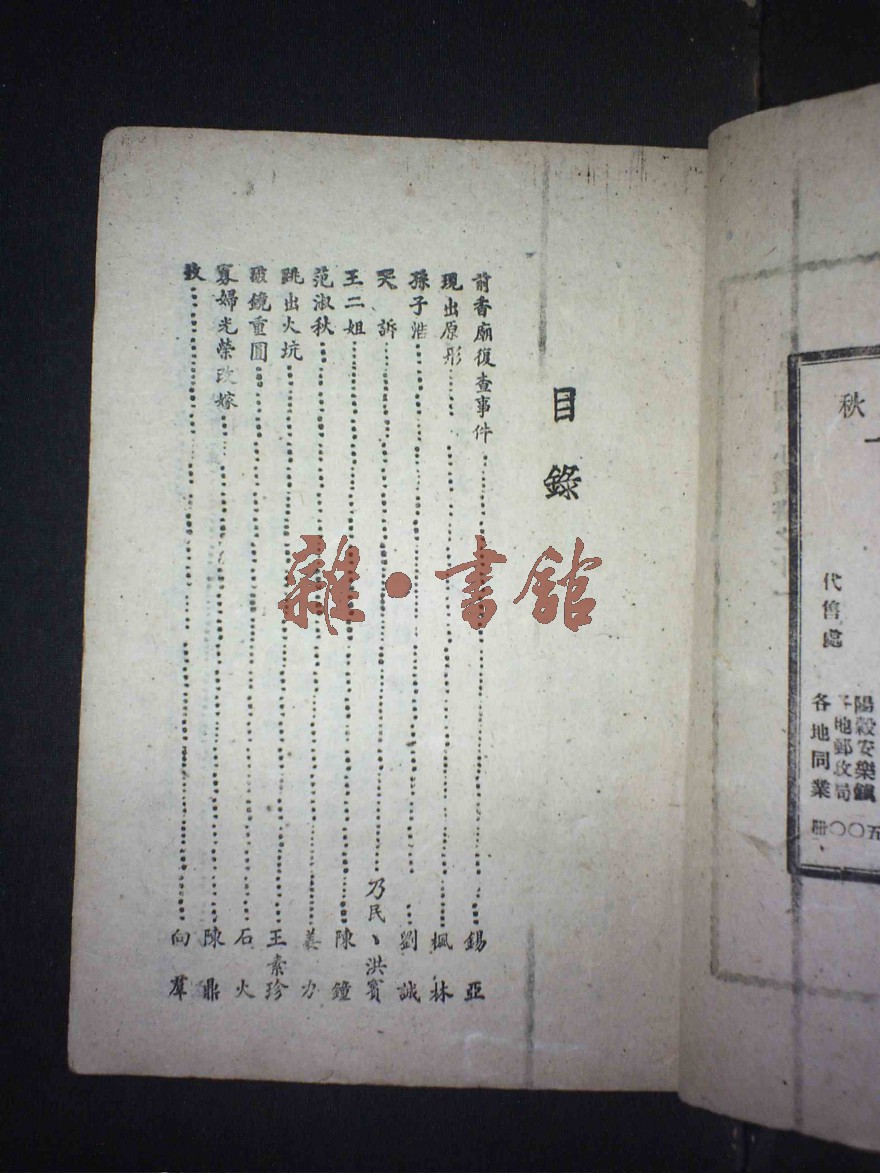 秋
代售處
陽穀安樂鎮
地郵政局
各地同業
五〇〇冊
目錄
前香廟復查事件 錫亞
現出原形 楓林
孫子浩 劉誠
哭訴 乃民、洪賓
王二姐 陳鐘
范淑秋 姜力
跳出火坑 王素珍
破鏡重圓 石火
寡婦光榮改嫁 陳鼎
教 向羣
雜·書舘